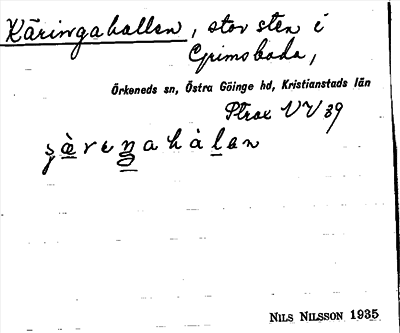 Käringahallen, stor sten i
Grimsboda,
Örkeneds sn, Östra Göinge hd, Kristianstads län
VV 39
NILS NILSSON 1935